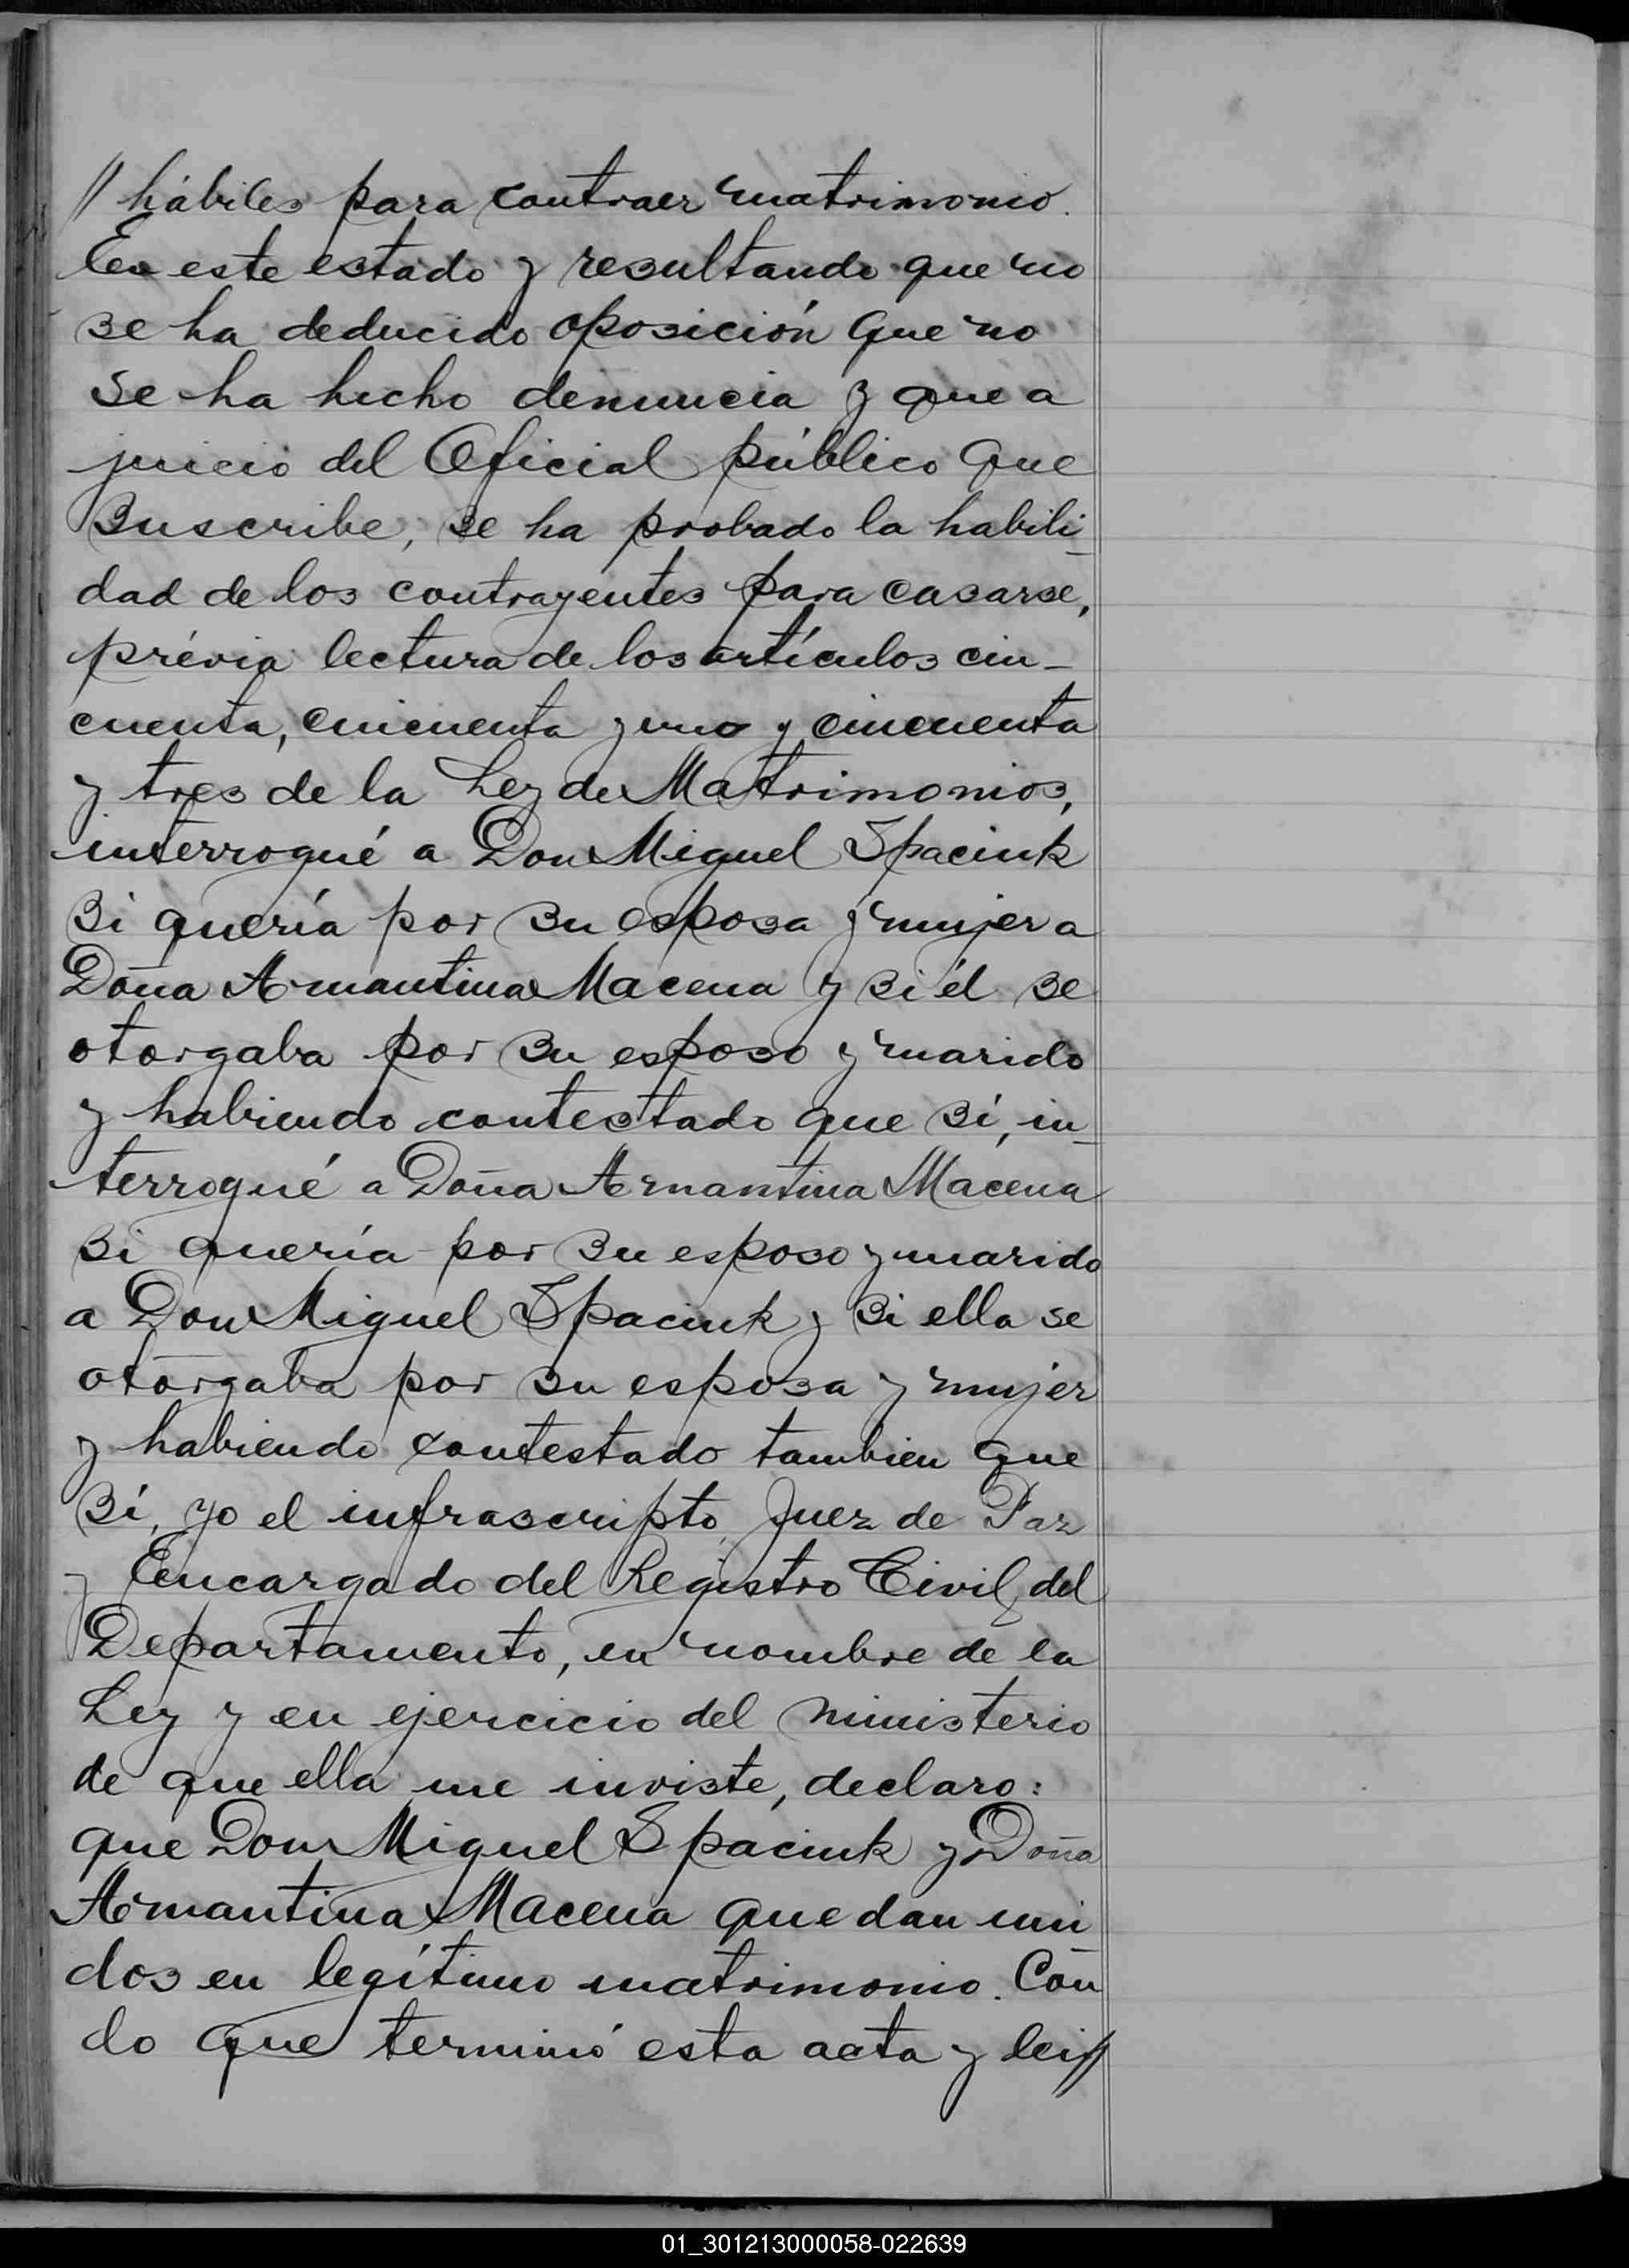 // hábiles para contraer matrimonio.
En este estado y resultando que no
se ha deducido oposición que no
se ha hecho denuncia y que a
juicio del Oficial público que
suscribe, se ha probado la habili_
dad de los contrayentes para casarse,
prévia lectura de los artículos cin_
cuenta, cincuenta y uno y cincuenta
y tres de la Ley de Matrimonios,
interrogué a Don Miguel Spaciuk
si quería por su esposa y mujer a
Doña Armantina Macena y si él se
otorgaba por su esposo y marido
y habiendo contestado que sí, in_
terrogué a Doña Armantina Macena
si quería por su esposo y marido
a Don Miguel Spaciuk y si ella se
otorgaba por su esposa y mujer
y habiendo contestado tambien que
sí, yo el infrascripto Juez de Paz
y Encargado del Registro Civil del
Departamento, en nombre de la
Ley y en ejercicio del ministerio
de que ella me inviste, declaro:
que Don Miguel Spaciuk y Doña
Armantina Macena quedan uni
dos en legítimo matrimonio. Con
lo que terminó esta acta y leí//
01_301213000058-022639